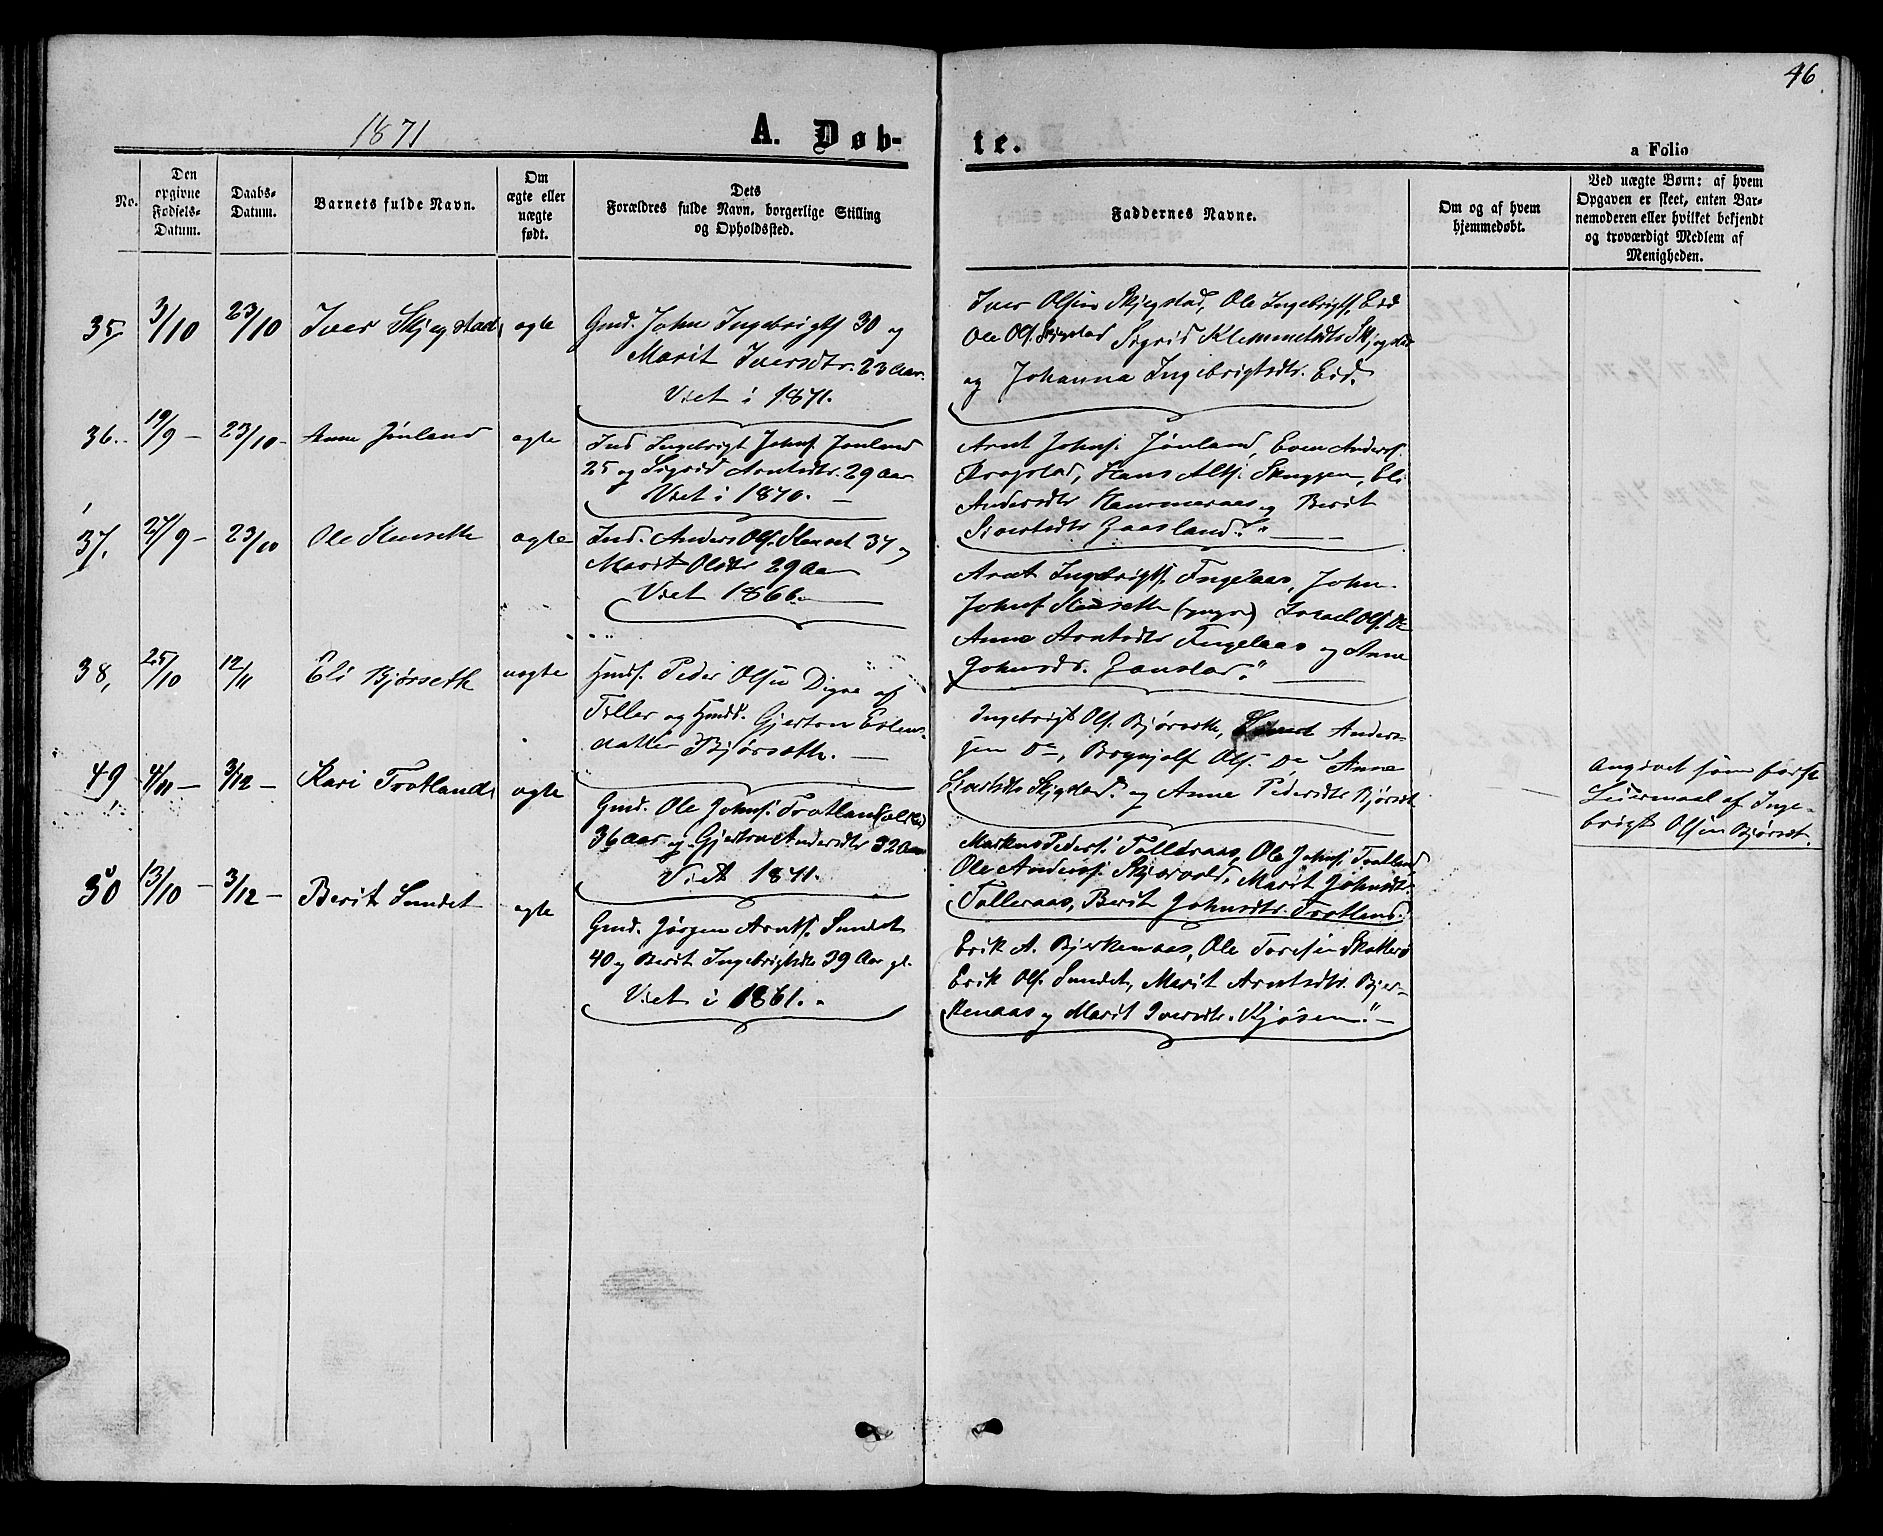 46.
1871
A. Døb-
te.
a Folio
No.
Den
opgivne
Fødsels-
Datum.
Daabs-
Datum.
Barnets fulde Navn.
Om
ægte eller
uægte
født.
Dets
Forældres fulde Navn, borgerlige Stilling
og Opholdssted.
Faddernes Navne.
Om og af hvem
hjemmedøbt.
Ved uægte Børn: af hvem
Opgaven er skeet, enten Bar-
nemoderen eller hvilket bekjendt
og troværdigt Medlem af
Menigheden.
35, 3/10 23/10 Iver Skjegstad, ægte
Gmd. John Ingebrigts. 30 og
Marit Iversdtr. 23 Aar.
Viet i 1871.
Iver Olsen Skjegstad, Ole Ingebrigts. Eid
Ole Ols. Skjegstad Sigrid Klemmetsdtr Skjegstad
og Johanna Ingebrigtsdtr. Eid.
36. 19/9 - 23/10 - Anne Jønland ægte
Ind Ingebrigt Johns. Jønland
25 og Sigrid Arntsdtr. 29 Aar
Viet i 1870. —
Arnt Johns. Jønland, Even Anders.
Krogstad, Hans Skuggen, Eli
Andersdtr Hammernaes og Berit
Sivertsdtr Gaasland. —
37. 27/9 - 23/10 Ole Stenseth ægte
Ind. Anders Ols. Stenset 37 og
Marit Olsdtr 29 Aar
Viet 1866. —
Arnt Ingebrigts. Engelaas, John
Johns. Stenseth (yngre) Israel Ols. Do
Anne Arntsdtr Engelaas og Anne
Johnsdtr.
38, 25/10 12/11 Eli Bjørseth uægte
Peder Olsen Digre af
Tiller og Gjertru Estens-
datter Bjørseth. —
Ingebrigt Ols. Bjørseth, Anders-
sen Do, Brynjolf Ols. Do Anne
Skjegstad. og Anne Pedersdtr Bjørset
Angivet som første
Leiermaal af Inge-
brigt Olsen Bjørset.
49, 4/11 - 3/12 - Kari Trotland, ægte
Gmd. Ole Johns. Trotland (ældre)
36 Aar og Gjertru Andersdtr 32 Aar
Viet 1871.
Markus Peders. Tølleraas, Ole Johns. Trotland
Ole Anders. Skjervold, Marit Johnsdtr.
Tølleraas, Berit Johnsdtr. Trotland.
50 13/10 - 3/12 - Berit Sundet ægte
Gmd. Jørgen Arnts. Sundet
40 og Berit Ingebrigtsdtr 39 Aar gl.
Viet i 1861. -
Erik A. Bjerkenaas, Ole Toresen
Erik Ols. Sundet, Marit Arntsdtr. Bjer-
kenaas og Marit Iversdtr. Kjøsen. —